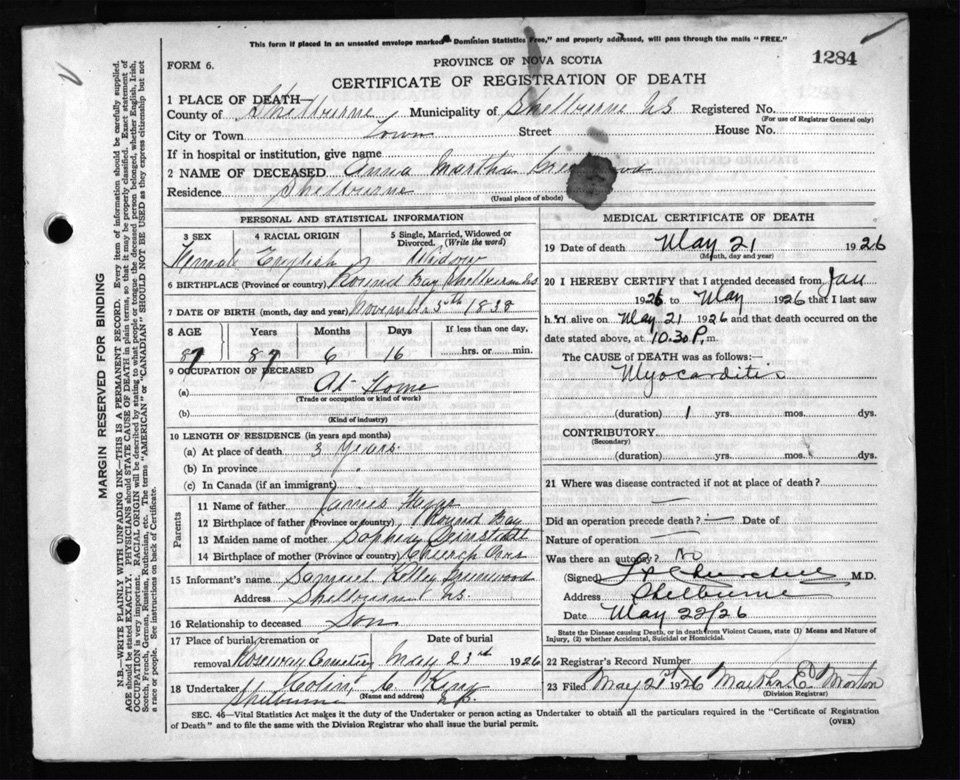 This form if placed in an unsealed envelope marked "Dominion Statistics Free," and properly addressed, will pass through the mails "FREE."
1284
FORM 6.
PROVINCE OF NOVA SCOTIA
CERTIFICATE OF REGISTRATION OF DEATH
1 PLACE OF DEATH—
County of Shelburne Municipality of Shelburne NS Registered No.
(For use of Registrar General only)
City or Town Town Street House No.
If in hospital or institution, give name
2 NAME OF DECEASED Annie Martha
Residence Shelburne
(Usual place of abode)
PERSONAL AND STATISTICAL INFORMATION
3 SEX 4 RACIAL ORIGIN 5 Single, Married, Widowed or Divorced. (Write the word)
Female English Widow
6 BIRTHPLACE (Province or country) Round Bay Shelburne NS
7 DATE OF BIRTH (month, day and year) November 5th 1838
8 AGE Years Months Days If less than one day,
87 87 6 16 hrs. or min.
9 OCCUPATION OF DECEASED
(a) At Home
(Trade or occupation or kind of work)
(b)
(Kind of industry)
10 LENGTH OF RESIDENCE (in years and months)
(a) At place of death 3 Years
(b) In province
(c) In Canada (if an immigrant)
Parents
11 Name of father James
12 Birthplace of father (Province or country) Round Bay
13 Maiden name of mother
14 Birthplace of mother (Province or country) Church Over
15 Informant's name Samuel Kelley Greenwood
Address Shelburne NS.
16 Relationship to deceased Son
17 Place of burial, cremation or Date of burial
removal Roseway Cemetery May 23rd 1926
18 Undertaker Colin C King
(Name and address)
Shelburne N.S.
MEDICAL CERTIFICATE OF DEATH
19 Date of death May 21 1926
(Month, day and year)
20 I HEREBY CERTIFY that I attended deceased from Jan
1926 to May 1926 that I last saw
h er alive on May 21 1926 and that death occurred on the
date stated above, at 10.30 P. m.
The CAUSE OF DEATH was as follows:—
Myocarditis
(duration) 1 yrs. mos. dys.
CONTRIBUTORY
(Secondary)
(duration) yrs. mos. dys.
21 Where was disease contracted if not at place of death?
—
Did an operation precede death? — Date of
Nature of operation —
Was there an autopsy? No
(Signed) M.D.
Address Shelburne
Date May 22/26
State the Disease causing Death, or in death from Violent Causes, state (1) Means and Nature of Injury, (2) whether Accidental, Suicidal or Homicidal.
22 Registrar's Record Number
23 Filed May 1926 Martha E Morton
(Division Registrar)
SEC. 46—Vital Statistics Act makes it the duty of the Undertaker or person acting as Undertaker to obtain all the particulars required in the "Certificate of Registration
of Death" and to file the same with the Division Registrar who shall issue the burial permit. (OVER)
MARGIN RESERVED FOR BINDING
N.B.—WRITE PLAINLY WITH UNFADING INK—THIS IS A PERMANENT RECORD. Every item of information should be carefully supplied.
AGE should be stated EXACTLY. PHYSICIANS should STATE CAUSE OF DEATH in plain terms, so that it may be properly classified. Exact statement of
OCCUPATION is very important. RACIAL ORIGIN will be described by stating to what people or tongue the deceased person belonged, whether English, Irish,
Scotch, French, German, Russian, Ruthenian, etc. The terms "AMERICAN" or "CANADIAN" SHOULD NOT BE USED as they express citizenship but not
a race or people. See instructions on back of Certificate.